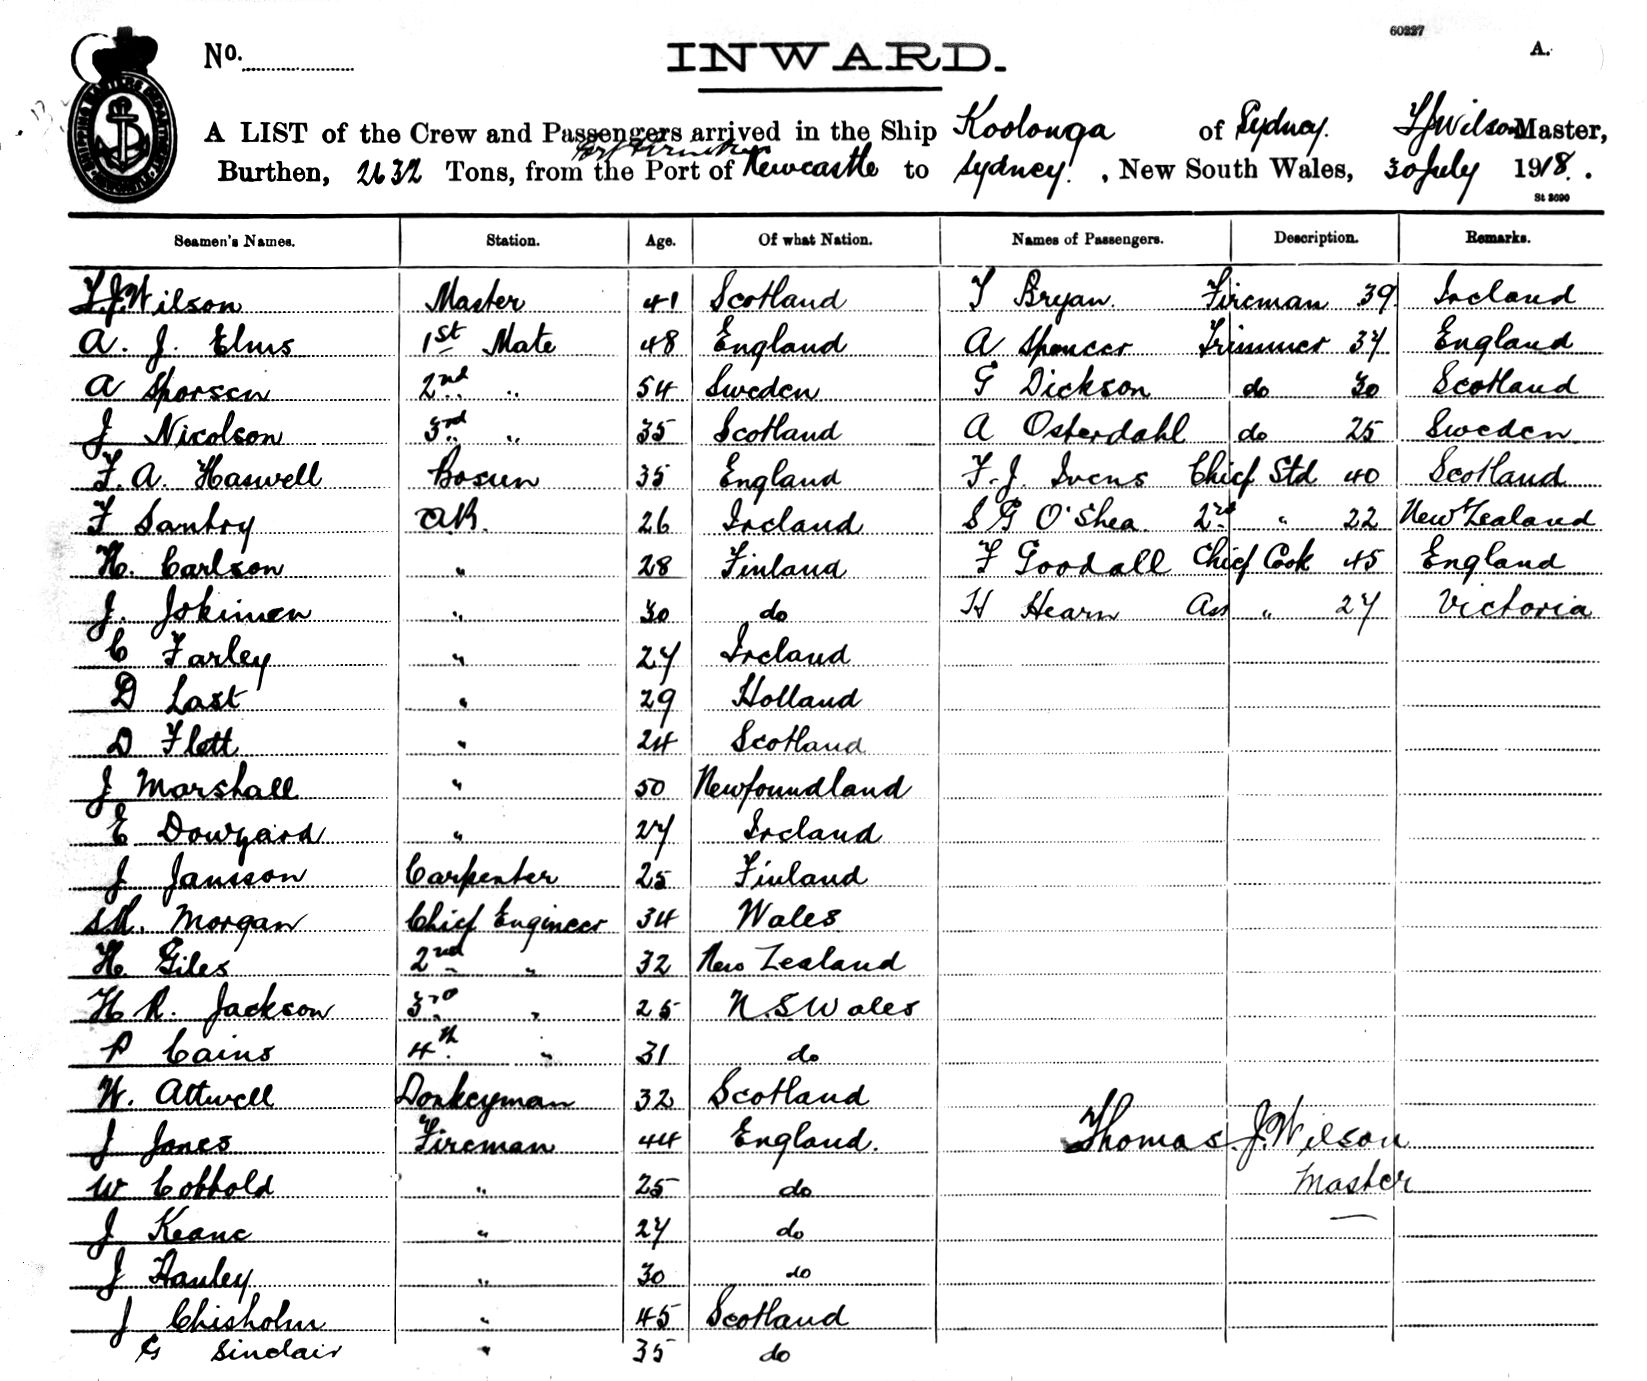 60227
No. INWARD. A.
A LIST of the Crew and Passengers arrived in the Ship Koolonga of Sydney. T J Wilson Master,
Port Pirie
Burthen, 2632 Tons, from the Port of Newcastle to Sydney. , New South Wales, 30 July 1918. .
St 3690
Seamen's Names. Station. Age. Of what Nation. Names of Passengers. Description. Remarks.
T.J. Wilson Master 41 Scotland T Bryan. Fireman 39 Ireland
A. J. Elms 1st Mate 48 England A Spencer Trimmer 37 England
A Sporsen 2nd " 54 Sweden G Dickson do 30 Scotland
J Nicolson 3rd " 35 Scotland A Osterdahl do 25 Sweden
F. A. Haswell Bosun 35 England F. J. Ivens Chief Std 40 Scotland
F Santry AB. 26 Ireland S G O'Shea 2nd " 22 New Zealand
H. Carlson " 28 Finland F Goodall Chief Cook 45 England
J. Jokinen " 30 do H Hearn Ass " 27 Victoria
C Farley " 27 Ireland
D Last " 29 Holland
D Flett " 24 Scotland
J Marshall " 50 Newfoundland
E Dowzard " 27 Ireland
J Jansson Carpenter 25 Finland
Morgan Chief Engineer 34 Wales
H. Giles 2nd " 32 New Zealand
H R. Jackson 3rd " 25 N.S Wales
P Cains 4th " 31 do
W. Attwell Donkeyman 32 Scotland
J Jones Fireman 44 England. Thomas J. Wilson
W Cobbold " 25 do Master
J Keane " 27 do
J Hanley " 30 do
J Chisholm " 45 Scotland
G Sinclair " 35 do